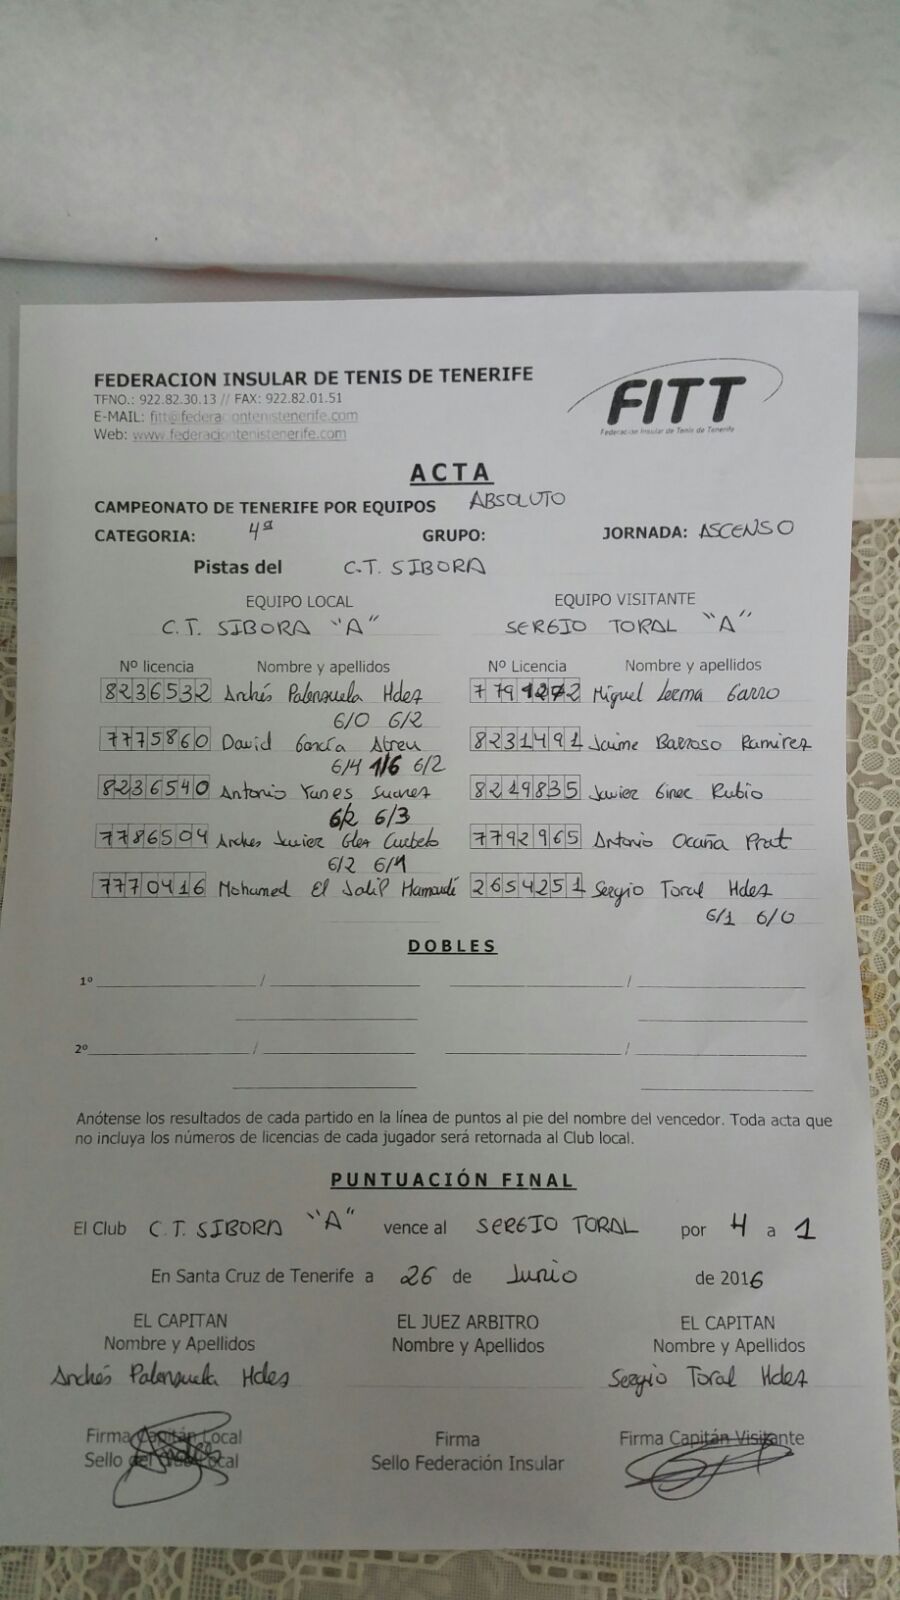 FEDERACION INSULAR DE TENIS DE TENERIFE
TFNO.: 922.82.30.13 // FAX: 922.82.01.51
E-MAIL: fitt@federaciontenistenerife.com
Web: www.federaciontenistenerife.com
FITT
Federacion Insular de Tenis de Tenerife
ACTA
CAMPEONATO DE TENERIFE POR EQUIPOS ABSOLUTO
CATEGORIA: 4ª GRUPO: JORNADA: ASCENSO
Pistas del C.T. SIBORA
EQUIPO LOCAL EQUIPO VISITANTE
C.T. SIBORA "A" SERGIO TORAL "A"
Nº licencia Nombre y apellidos Nº Licencia Nombre y apellidos
8236532 Andrés Palenzuela Hdez 7791272 Miguel Lerma Garro
6/0 6/2
7775860 David García Abreu 8231491 Jaime Barroso Ramirez
6/4 1/6 6/2
8236540 Antonio Yanes Suarez 8219835 Javier Giner Rubio
6/2 6/3
7786504 Andres Javier Glez Curbelo 7792965 Antonio Ocaña Prat
6/2 6/4
7770416 Mohamed El Jalil Hamaudi 2654251 Sergio Toral Hdez
6/1 6/0
DOBLES
1º / /
2º / /
Anótense los resultados de cada partido en la línea de puntos al pie del nombre del vencedor. Toda acta que
no incluya los números de licencias de cada jugador será retornada al Club local.
PUNTUACIÓN FINAL
El Club C.T. SIBORA "A" vence al SERGIO TORAL por 4 a 1
En Santa Cruz de Tenerife a 26 de Junio de 2016
EL CAPITAN EL JUEZ ARBITRO EL CAPITAN
Nombre y Apellidos Nombre y Apellidos Nombre y Apellidos
Andrés Palenzuela Hdez Sergio Toral Hdez
Firma Capitán Local Firma Firma Capitán Visitante
Sello del Club Local Sello Federación Insular